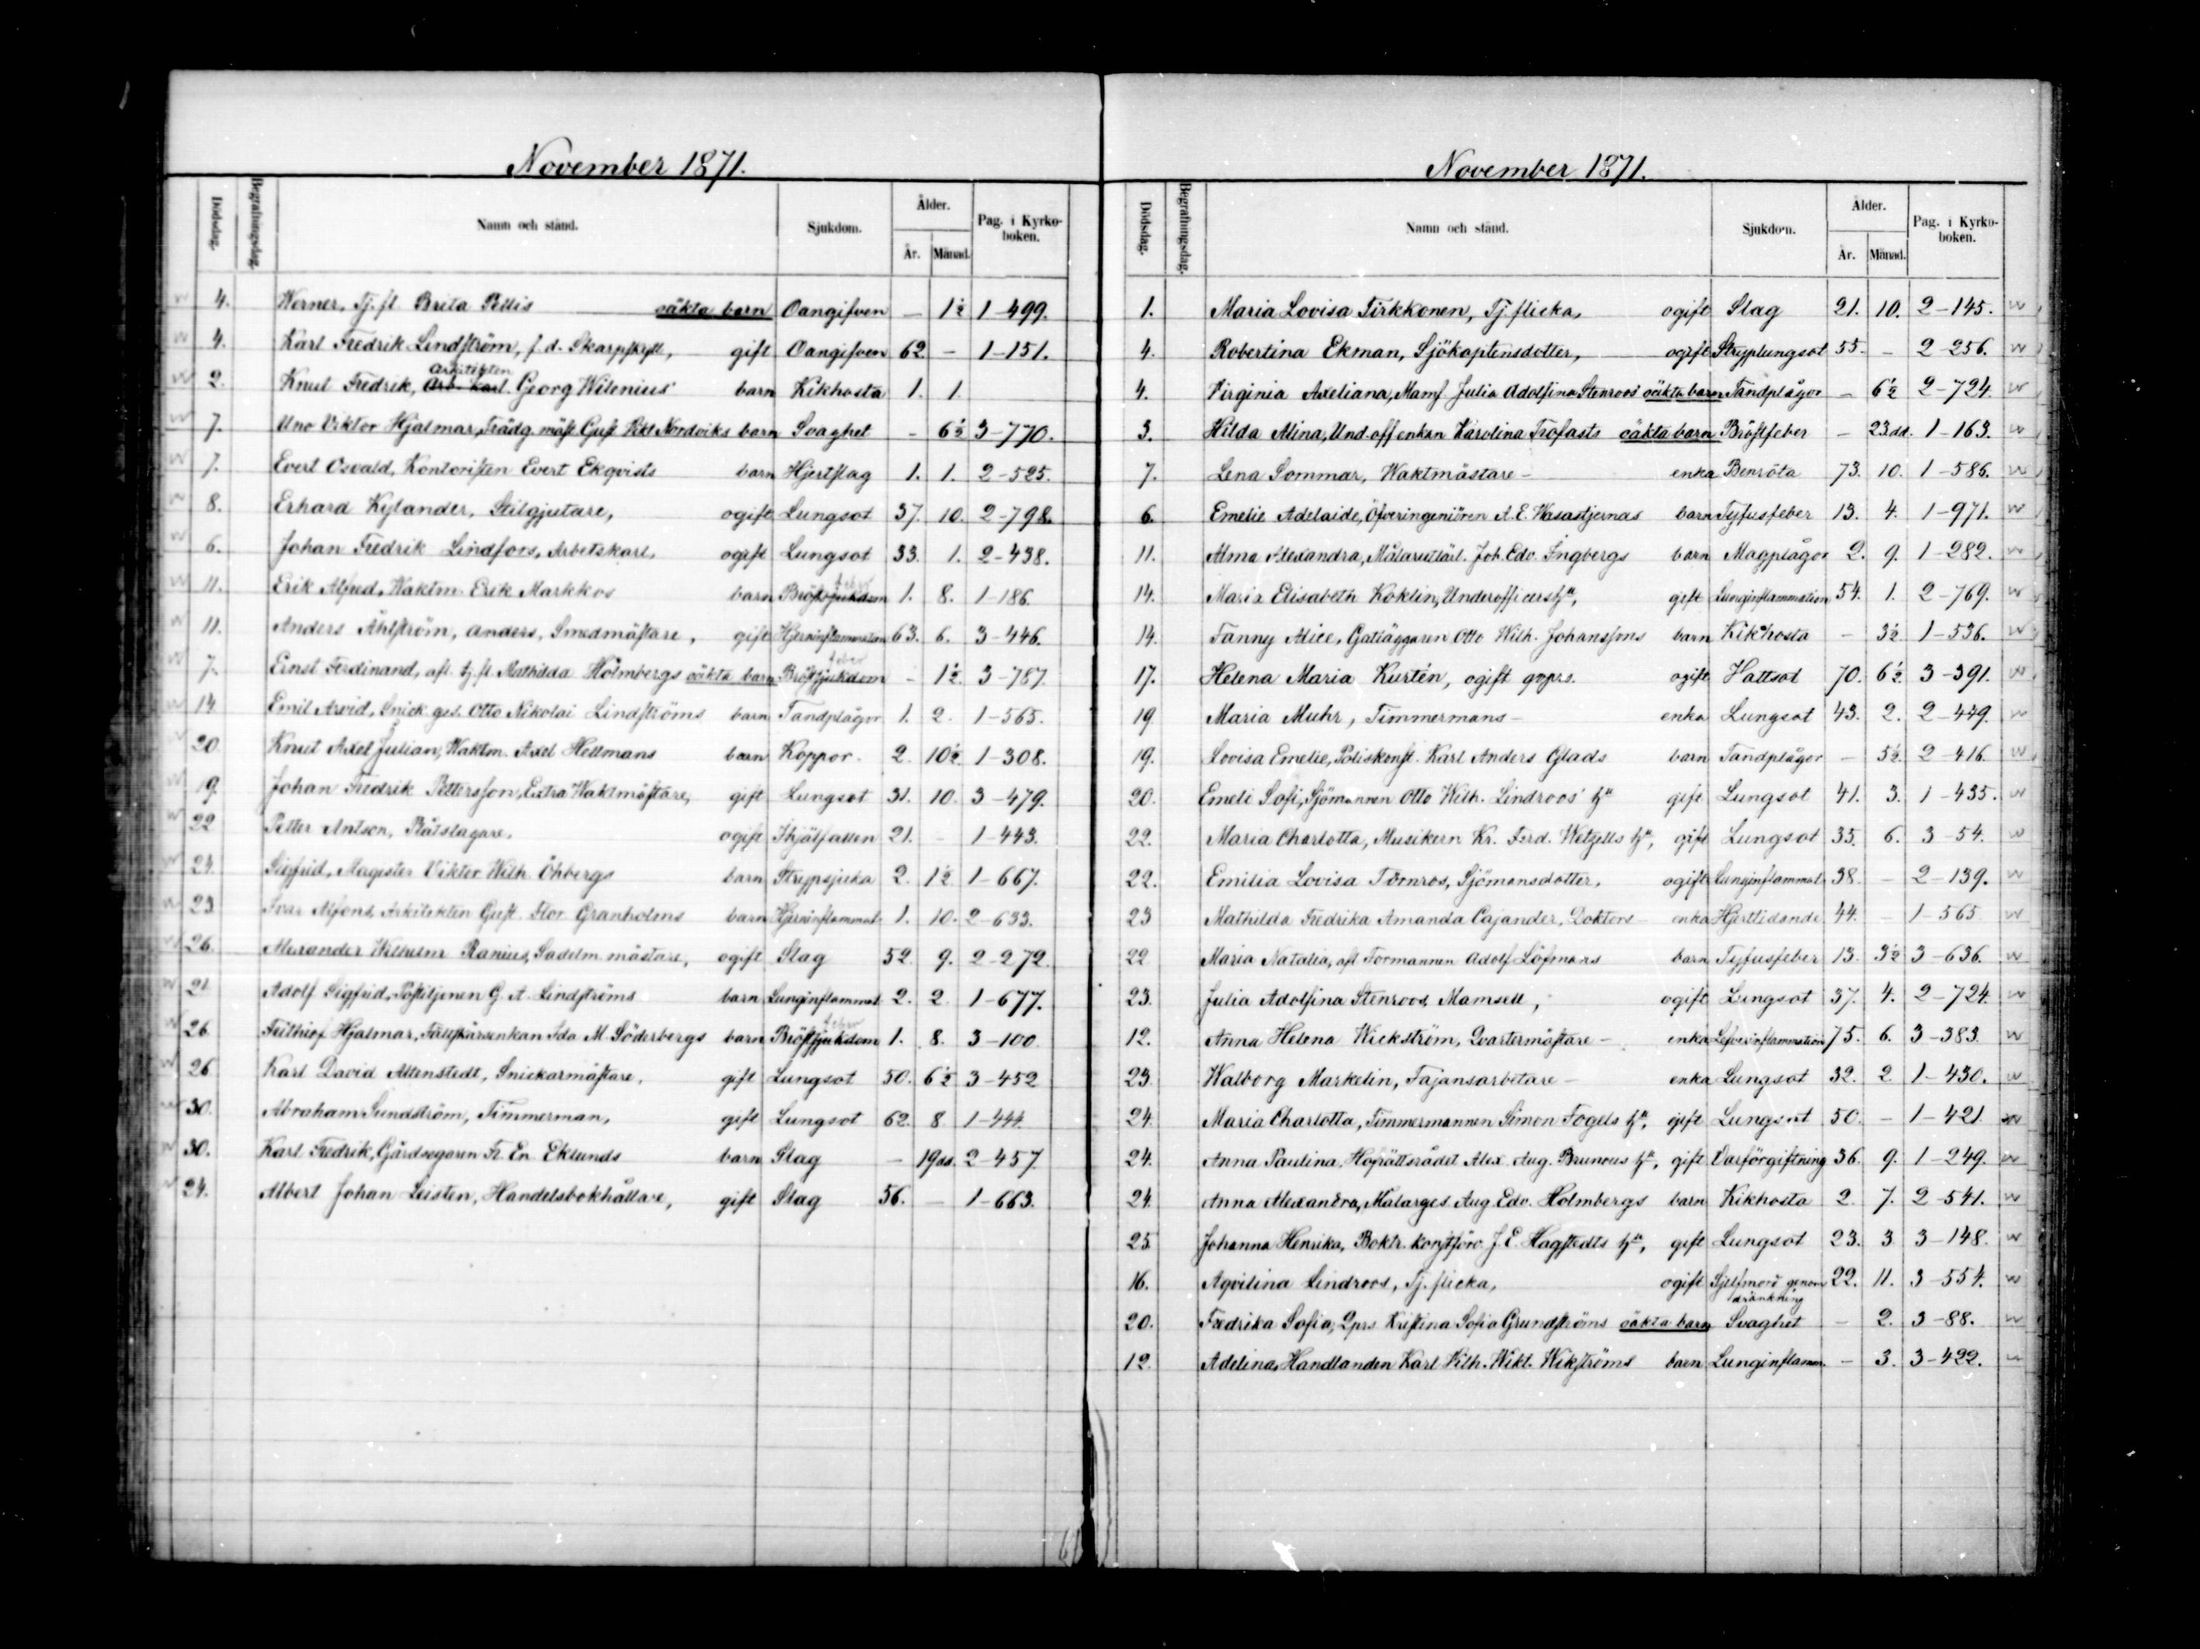 November 1871.
Dödsdag. Begrafningsdag. Namn och stånd. Sjukdom. Ålder. År. Månad. Pag. i Kyrkoboken.
4. Werner, Tj. fl. Brita Pellis oäkta barn Oangifven — 1½ 1-499.
4. Karl Fredrik Lindström, f. d. Skarpskytt, gift Oangifven 62 — 1-151.
2. Knut Fredrik, Arkitekten Georg Wilenius' barn Kikhosta 1. 1.
7. Uno Viktor Hjalmar, Trädg. mäst. Gust. Vikt. Nordviks barn Svaghet - 6½ 3-770.
7. Evert Osvald, Kontoristen Evert Ekqvists barn Hjertslag 1. 1. 2-525.
8. Erhard Kylander, Stilgjutare, ogift Lungsot 37. 10. 2-798.
6. Johan Fredrik Lindfors, Arbetskarl, ogift Lungsot 33. 1. 2-438.
11. Erik Alfred, Waktm. Erik Markkos barn Bröstsjukdom feber 1. 8. 1-186.
11. Anders Åhlström, Anders, Smedmästare, gift Hjerninflammation 63. 6. 3-446.
7. Ernst Ferdinand, afl. tj. fl. Mathilda Holmbergs oäkta barn Bröstsjukdom feber - 1½. 3-787.
14. Emil Arvid, Snick. ges. Otto Nikolai Lindströms barn Tandplågor 1. 2. 1-565.
20. Knut Axel Julian, Waktm. Axel Hellmans barn Koppor. 2. 10½ 1-308.
19. Johan Fredrik Pettersson, Extra Waktmästare, gift Lungsot 31. 10. 3-479.
22 Petter Antson, Råtslagare, ogift Ihjälfallen 21. - 1-443.
24. Sigfrid, Magister Viktor Wilh. Öhbergs barn Strypsjuka 2. 1½ 1-667.
23. Ivar Alfons, Arkitekten Gust. Flor. Granholms barn Hjerninflammat. 1. 10. 2-633.
26. Alexander Wilhelm Ranius, Sadelm. mästare, ogift Slag 52. 9. 2-272.
21. Adolf Sigfrid, Postiljonen G. A. Lindströms barn Lunginflammat. 2. 2. 1-677.
26. Frithiof Hjalmar, Fältskärsenkan Ida M. Söderbergs barn Bröstsjukdom feber 1. 8. 3-100.
26 Karl David Altenstedt, Snickarmästare, gift Lungsot 50. 6½ 3-452
30. Abraham Sundström, Timmerman, gift Lungsot 62. 8 1-444.
30. Karl Fredrik, Gårdsegaren Fr. En. Eklunds barn Slag — 19 dd. 2-457.
24. Albert Johan Leisten, Handelsbokhållare, gift Slag 56. — 1-663.
November 1871.
Dödsdag. Begrafningsdag. Namn och stånd. Sjukdom. Ålder. År. Månad. Pag. i Kyrkoboken.
1. Maria Lovisa Tirkkonen, Tj. flicka, ogift Slag 21. 10. 2-145.
4. Robertina Ekman, Sjökaptensdotter, ogift Stryplungsot 55. - 2-256.
4. Virginia Axeliana, Mams. Julia Adolfina Stenroos' oäkta barn Tandplågor — 6½ 2-724.
3. Hilda Alina, Und. off. enkan Karolina Trofasts oäkta barn Bröstfeber — 23 dd. 1-163.
7. Lena Sommar, Waktmästare- enka Benröta 73. 10. 1-586.
6. Emelie Adelaide, Öfveringeniören A. E. Wasastjernas barn Tyfusfeber 13. 4. 1-971.
11. Alma Alexandra, Målarelärl. Joh. Edv. Ingbergs barn Magplågor 2. 9. 1-282.
14. Maria Elisabeth Koklin, Underofficers hu, gift Lunginflammation 54. 1. 2-769.
14. Fanny Alice, Gatläggaren Otto Wilh. Johanssons barn Kikhosta — 3½ 1-536.
17. Helena Maria Kurtén, ogift qvprs. ogift Hattsot 70. 6½ 3-391.
19. Maria Muhr, Timmermans- enka Lungsot 43. 2. 2-449.
19. Lovisa Emelie, Poliskonst. Karl Anders Glads barn Tandplågor — 5½ 2-416.
20. Emeli Sofi, Sjömannen Otto Wilh. Lindroos' hu gift Lungsot 41. 3. 1-435.
22. Maria Charlotta, Musikern Kr. Ferd. Wetzells hu, gift Lungsot 35. 6. 3-54.
22. Emilia Lovisa Törnros, Sjömansdotter, ogift Lunginflammat. 38. - 2-139.
23 Mathilda Fredrika Amanda Cajander, Doktors- enka Hjertlidande 44. - 1-565
22 Maria Natalia, afl. Formannen Adolf Löfmans barn Tyfusfeber 13. 3½ 3-636.
23. Julia Adolfina Stenroos, Mamsell, ogift Lungsot 37. 4. 2-724.
12. Anna Helena Wickström, Qvartermästare- enka Lefverinflammation 75. 6. 3-383.
23. Walborg Markelin, Fajansarbetare- enka Lungsot 32. 2 1-430.
24. Maria Charlotta, Timmermannen Simon Fogels hu, gift Lungsot 50. - 1-421
24. Anna Paulina, Hofrättsrådet Alex. Aug. Brunous hu, gift Varförgiftning 36. 9. 1-249.
24. Anna Alexandra, Målarges. Aug. Edv. Holmbergs barn Kikhosta 2 7. 2-541.
25. Johanna Henrika, Boktr. konstförv. J. E. Hagstedts hu, gift Lungsot 23. 3 3-148.
16. Aqvilina Lindroos, Tj. flicka, ogift Sjelfmord genom dränkning 22. 11. 3-554.
20. Fredrika Sofia, Qprs Kristina Sofia Grundströms oäkta barn Svaghet — 2. 3-88.
12. Adelina, Handlanden Karl Vilh. Wikt. Wikströms barn Lunginflamm. - 3. 3-422.